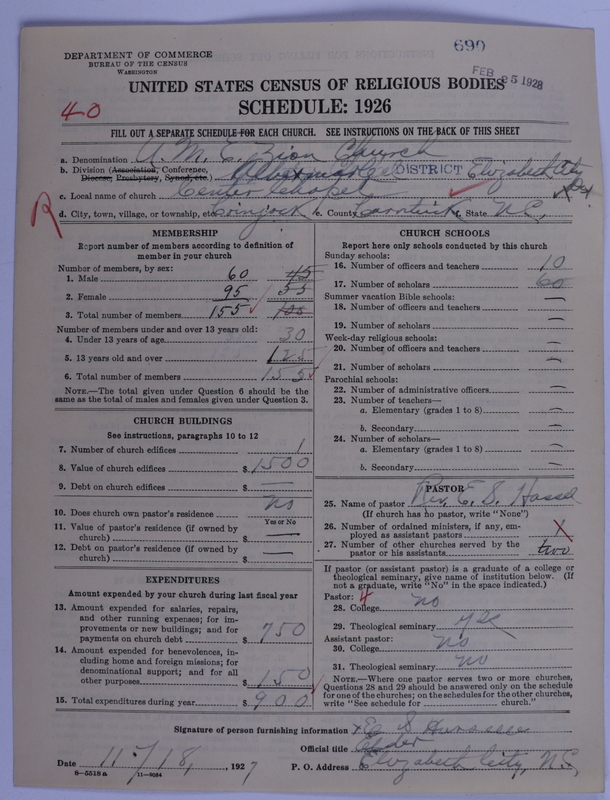 690
FEB 25 1928
DEPARTMENT OF COMMERCE
BUREAU OF THE CENSUS
WASHINGTON
UNITED STATES CENSUS OF RELIGIOUS BODIES
SCHEDULE: 1926
40
FILL OUT A SEPARATE SCHEDULE FOR EACH CHURCH. SEE INSTRUCTIONS ON THE BACK OF THIS SHEET
a. Denomination A. M. E. Zion Church
b. Division (Association, Conference, Diocese, Presbytery, Synod, etc.) DISTRICT Elizabeth City
c. Local name of church Center Chapel
R
d. City, town, village, or township, etc. Coinjock e. County Currituck f. State N.C.
MEMBERSHIP
Report number of members according to definition of
member in your church
Number of members, by sex:
1. Male 60 45
2. Female 95 55
3. Total number of members 155 100
Number of members under and over 13 years old:
4. Under 13 years of age 30
5. 13 years old and over 125
6. Total number of members 155
NOTE.—The total given under Question 6 should be the
same as the total of males and females given under Question 3.
CHURCH BUILDINGS
See instructions, paragraphs 10 to 12
7. Number of church edifices 1
8. Value of church edifices $ 1500
9. Debt on church edifices $ —
10. Does church own pastor's residence? no
Yes or No
11. Value of pastor's residence (if owned by
church) $ —
12. Debt on pastor's residence (if owned by
church) $ —
EXPENDITURES
Amount expended by your church during last fiscal year
13. Amount expended for salaries, repairs,
and other running expenses; for im-
provements or new buildings; and for
payments on church debt $ 750
14. Amount expended for benevolences, in-
cluding home and foreign missions; for
denominational support; and for all
other purposes $ 150
15. Total expenditures during year $ 900
CHURCH SCHOOLS
Report here only schools conducted by this church
Sunday schools:
16. Number of officers and teachers 10
17. Number of scholars 60
Summer vacation Bible schools:
18. Number of officers and teachers —
19. Number of scholars —
Week-day religious schools:
20. Number of officers and teachers —
21. Number of scholars —
Parochial schools:
22. Number of administrative officers —
23. Number of teachers—
a. Elementary (grades 1 to 8) —
b. Secondary —
24. Number of scholars—
a. Elementary (grades 1 to 8) —
b. Secondary —
PASTOR
25. Name of pastor Rev. E. S. Hassel
(If church has no pastor, write "None")
26. Number of ordained ministers, if any, em-
ployed as assistant pastors X
27. Number of other churches served by the
pastor or his assistants two
If pastor (or assistant pastor) is a graduate of a college or
theological seminary, give name of institution below. (If
not a graduate, write "No" in the space indicated.)
Pastor: 4
28. College no
29. Theological seminary yes
Assistant pastor:
30. College no
31. Theological seminary no
NOTE.—Where one pastor serves two or more churches,
Questions 28 and 29 should be answered only on the schedule
for one of the churches; on the schedules for the other churches,
write "See schedule for church."
Signature of person furnishing information E S
Official title
Date 11/18, 1927
P. O. Address Elizabeth City, N.C.
8-5518a 11-9084